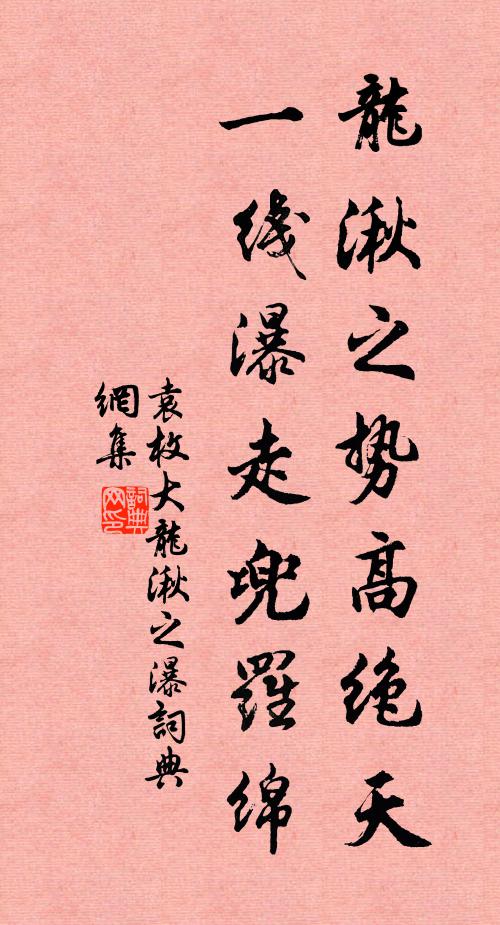 龍湫之势高绝天
一线瀑走兜羅绵
袁枚大龍湫之瀑詞典
網集
詞典网印